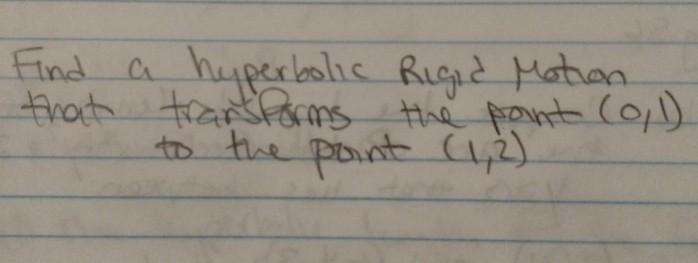 Find a hyperbolic Rigid Motion
that transforms the point (0,1)
to the point (1,2)